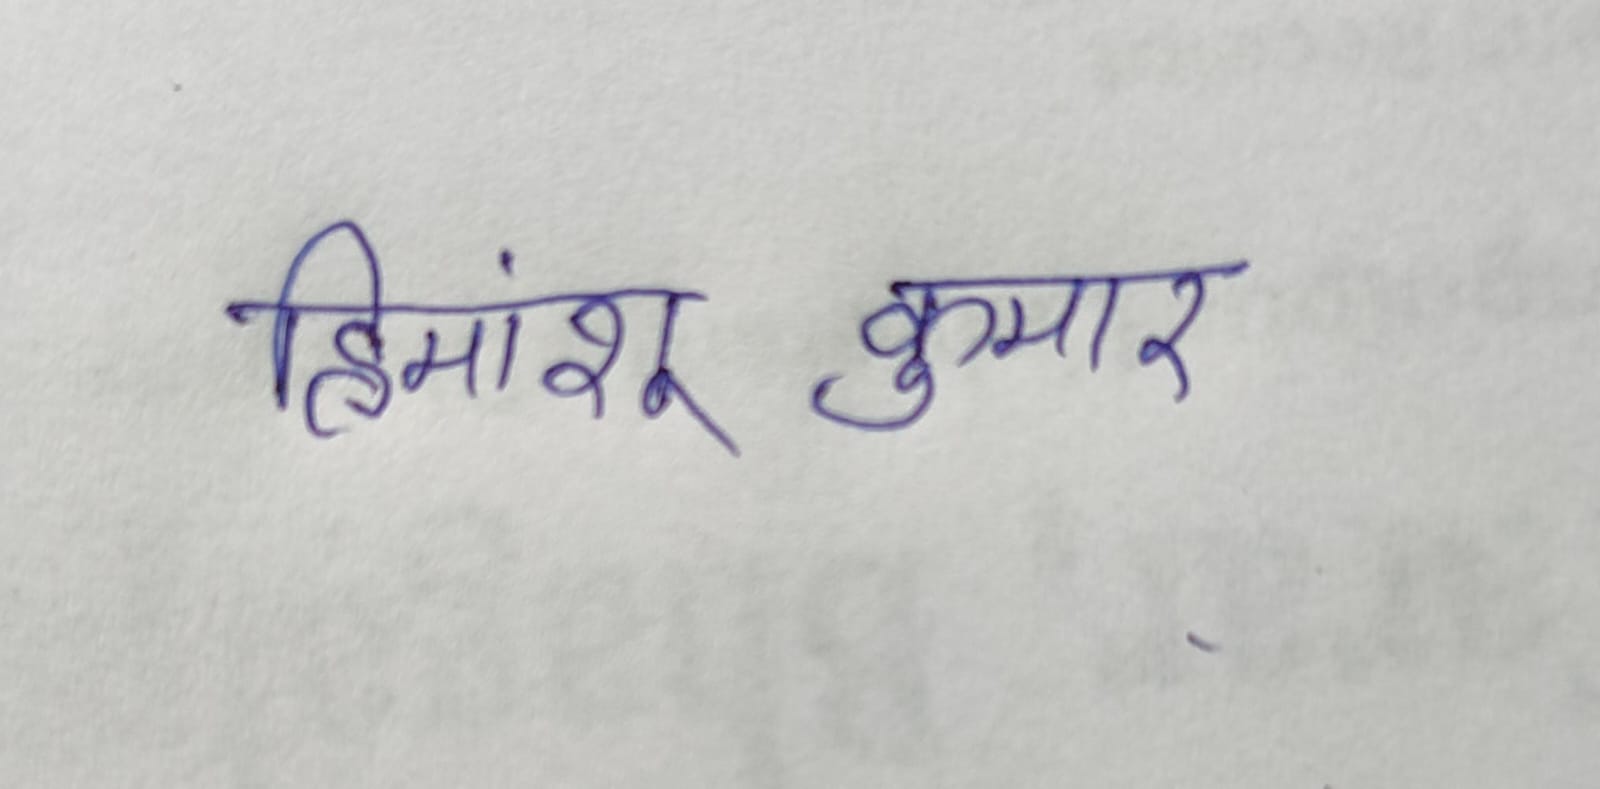 हिमांशू कुमार